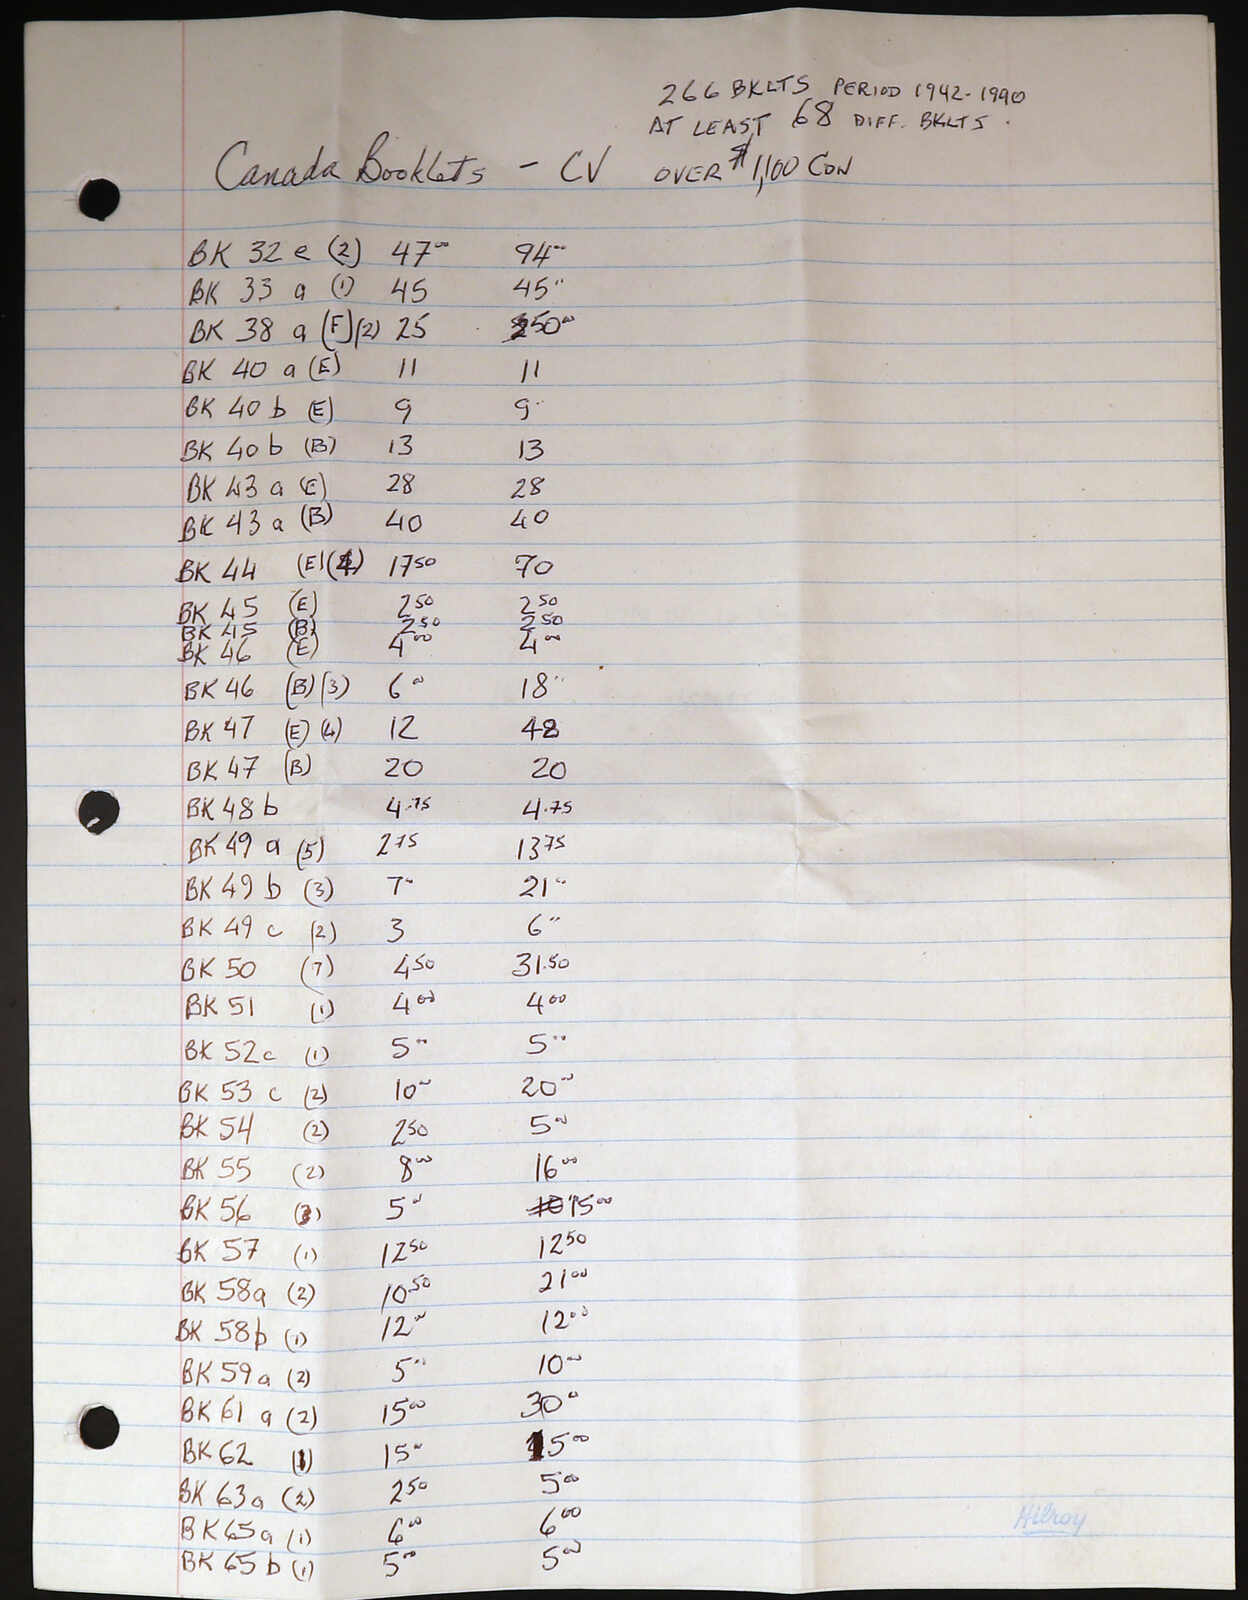 266 BKLTS PERIOD 1942-1990
AT LEAST 68 DIFF. BKLTS.
Canada Booklets - CV OVER $1,100 CDN
BK 32 e (2) 47.00 94.00
BK 33 a (1) 45 45.00
BK 38 a (F) (2) 25 50.00
BK 40 a (E) 11 11
BK 40 b (E) 9 9
BK 40 b (B) 13 13
BK 43 a (E) 28 28
BK 43 a (B) 40 40
BK 44 (E) (4) 17 50 70
BK 45 (E) 2 50 2 50
BK 45 (B) 2 50 2 50
BK 46 (E) 4 00 4 00
BK 46 (B) (3) 6 00 18 00
BK 47 (E) (4) 12 48
BK 47 (B) 20 20
BK 48 b 4.75 4.75
BK 49 a (5) 2 75 13 75
BK 49 b (3) 7 00 21 00
BK 49 c (2) 3 6 00
BK 50 (7) 4 50 31.50
BK 51 (1) 4 00 4 00
BK 52c (1) 5 00 5 00
BK 53 c (2) 10 00 20 00
BK 54 (2) 2 50 5 00
BK 55 (2) 8 00 16 00
BK 56 (3) 5 00 15 00
BK 57 (1) 12 50 12 50
BK 58a (2) 10.50 21 00
BK 58b (1) 12 00 12 00
BK 59a (2) 5 00 10 00
BK 61 a (2) 15 00 30 00
BK 62 (1) 15 00 15 00
BK 63a (2) 2 50 5 00
BK 65a (1) 6 00 6 00
BK 65 b (1) 5 00 5 00
Hilroy